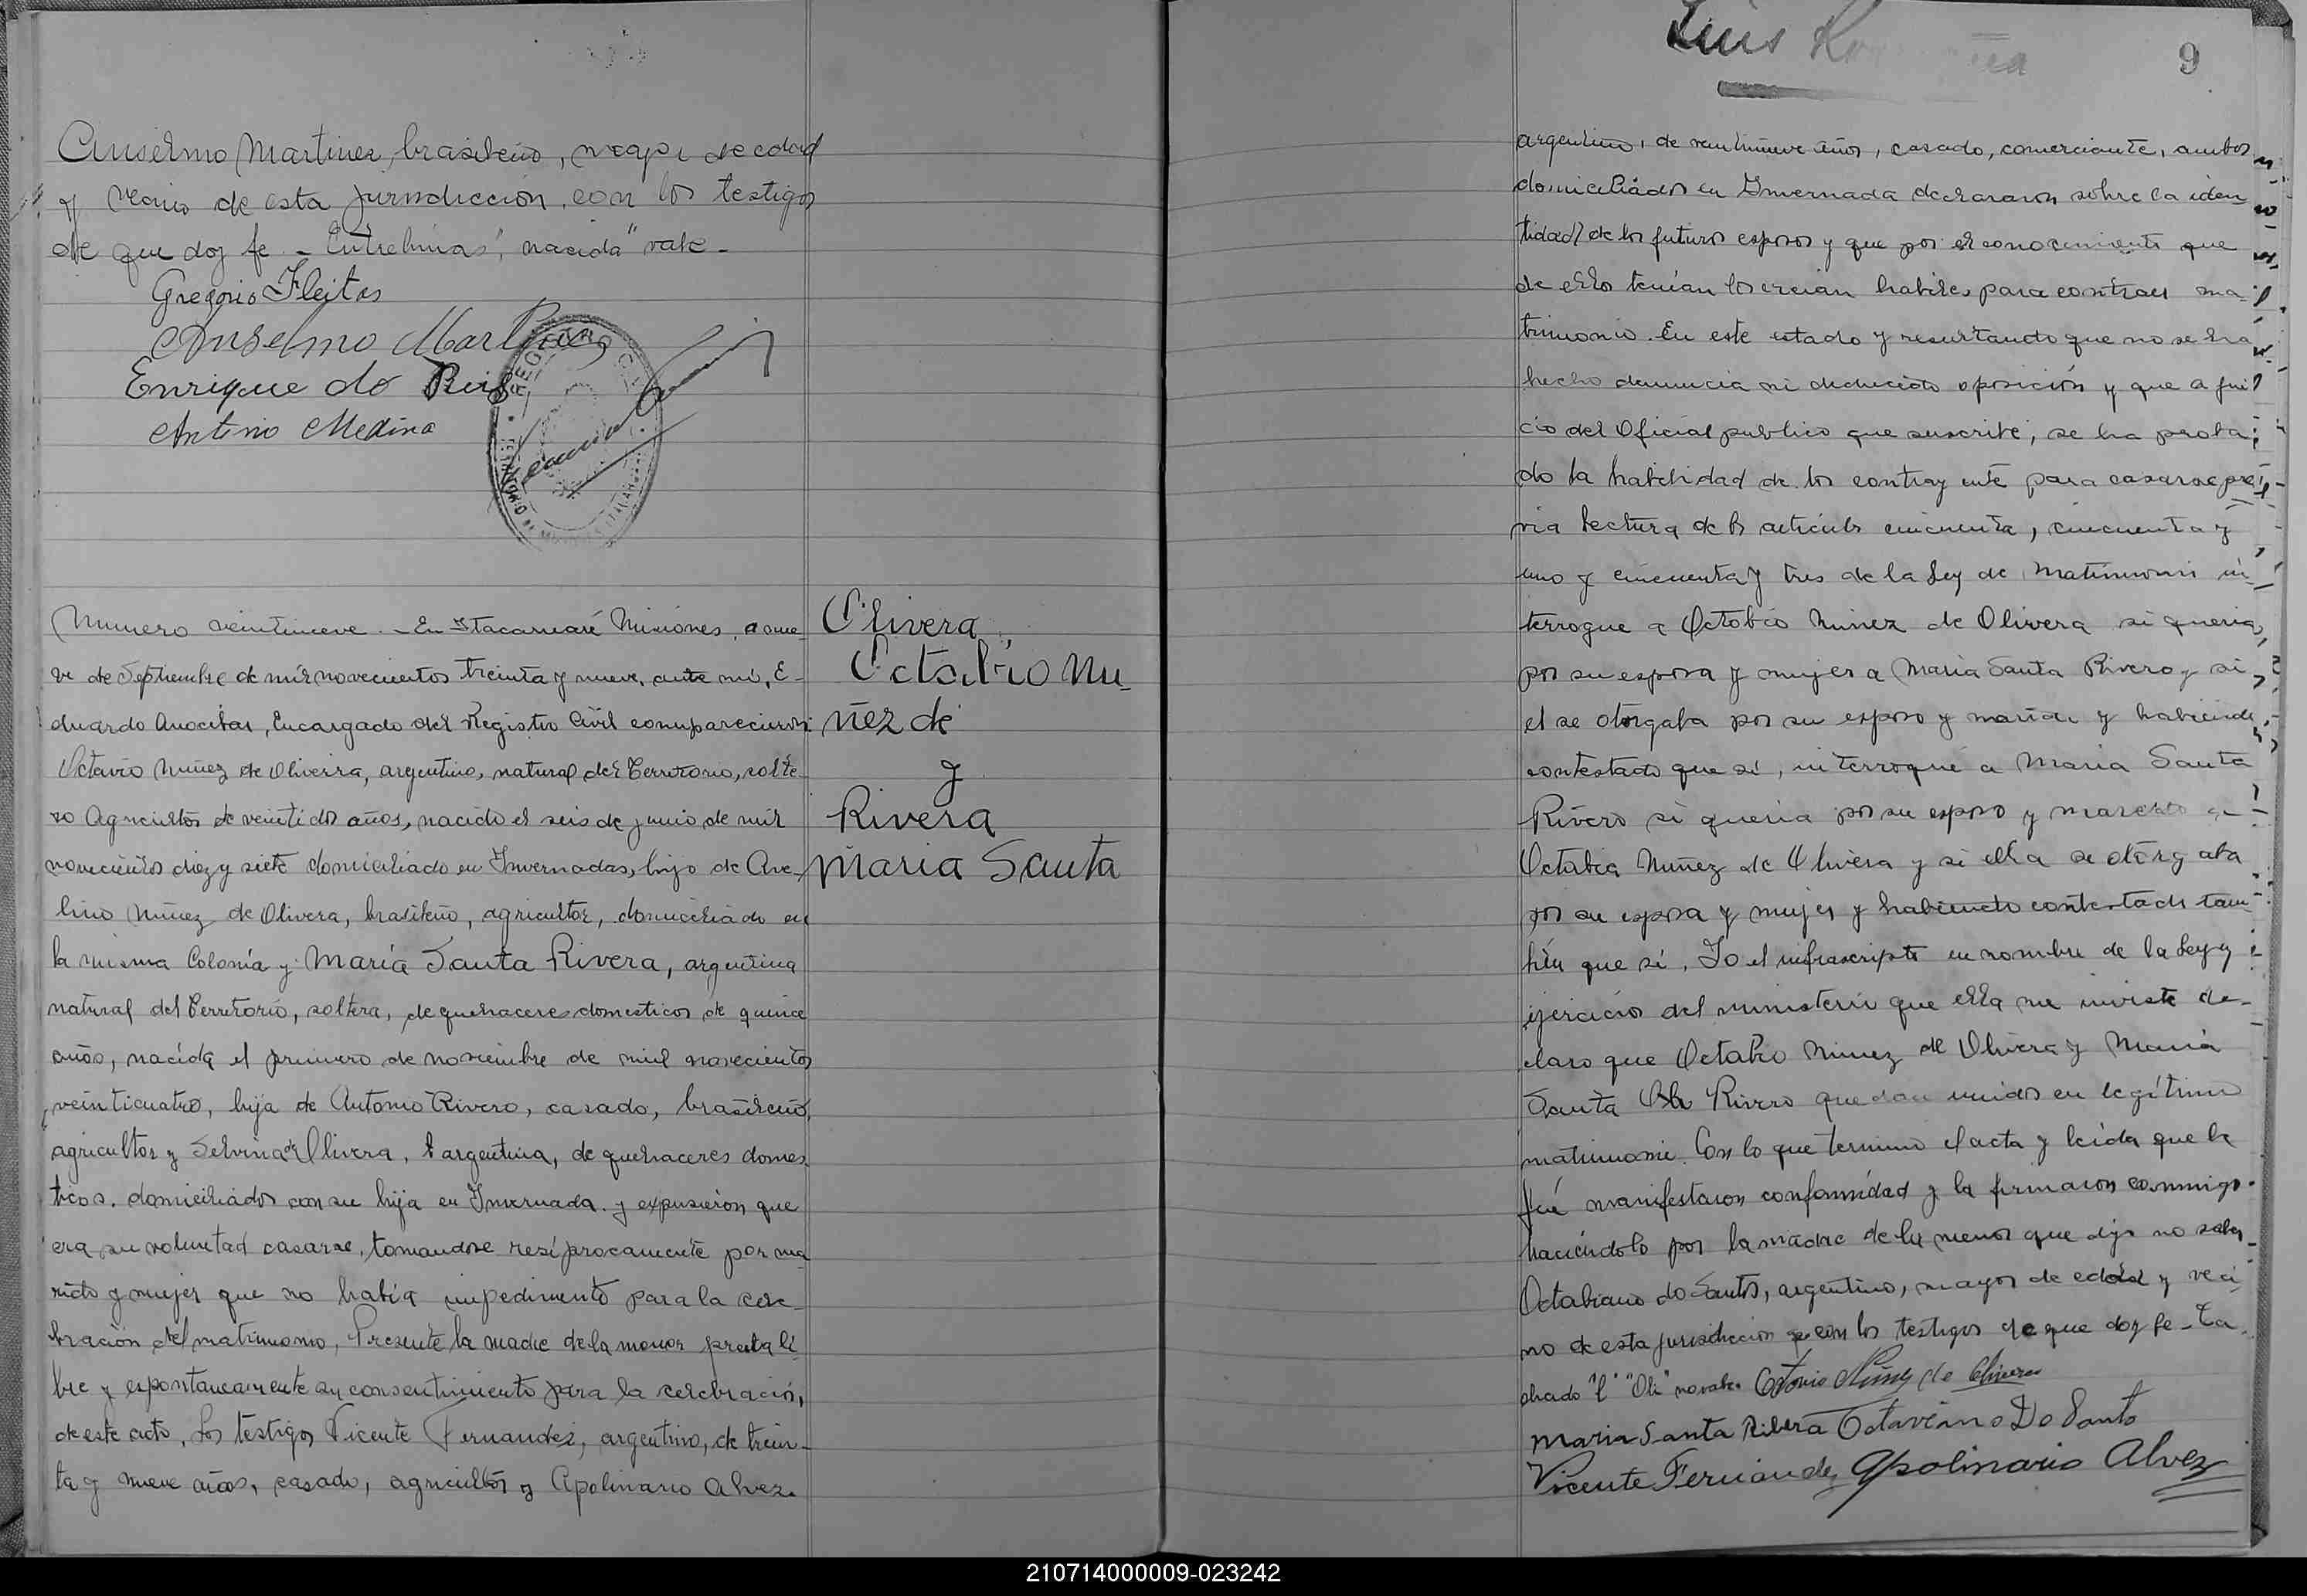 Anselmo Martinez, brasileño, mayor de edad
y vecino de esta jurisdicción con los testigos
de que doy fe - Entrelineas "nacida" vale -
Gregorio Fleitas
Anselmo Martinez
Enrique do
Antonio Medina
REGISTRO CIVIL
Numero veintinueve. - En Itacaruaré Misiones, a nue-
ve de Septiembre de mil novecientos treinta y nueve, ante mí, E-
duardo Anocibar, Encargado del Registro Civil comparecieron
Octavio Nuñez de Oliveira, argentino, natural del Territorio, solte-
ro Agricultor de veintidos años, nacido el seis de junio de mil
novecientos diez y siete domiciliado en Invernadas, hijo de Ave-
lino Nuñez de Olivera, brasileño, agricultor, domiciliado en
la misma Colonia y María Santa Rivera, argentina
natural del Territorio, soltera, de quehaceres domesticos de quince
años, nacida el primero de noviembre de mil novecientos
veinticuatro, hija de Antonio Rivero, casado, brasileño,
agricultor y Selvina de Olivera, l argentina, de quehaceres domes
ticos. domiciliados con su hija en Invernada. y expusieron que
era su voluntad casarse, tomandose resíprocamente por ma
rido y mujer que no había impedimento para la cele-
bración del matrimonio, Presente la madre de la menor presta li
bre y espontaneamente su consentimiento para la celebración,
de este acto, Los testigos Vicente Fernandez, argentino, de trein-
ta y nueve años, casado, agricultor y Apolinario Alvez.
Olivera
Octabio Nu-
ñez de
y
Rivera
Maria Santa
Luis
9
argentino, de veintinueve años, casado, comerciante, ambos
domiciliados en Invernada declararon sobre la iden
tidad de los futuros esposos y que por el conocimiento que
de ellos tenían los creían habiles para contraer ma-
trimonio. En este estado y resultando que no se ha
hecho denuncia ni deducido oposición y que a jui
cio del Oficial publico que suscribe, se ha proba
do la habilidad de los contrayente para casarse pre
via lectura de los articulos cincuenta, cincuenta y
uno y cincuenta y tres de la Ley de Matrimonio in-
terrogue a Octobio Nuñez de Olivera si queria
por su esposa y mujer a Maria Santa Rivero y si
el se otorgaba por su esposo y marido y habiendo
contestado que sí, interrogué a Maria Santa
Rivero si queria por su esposo y marido a
Octabio Nuñez de Olivera y si ella se otorgaba
por su esposa y mujer y habiendo contestado tam
bién que sí, Yo el infrascripto en nombre de la Ley y
ejercicio del ministerio que ella me inviste de-
claro que Octabio Nuñez de Olivera y Maria
Santa Oli Rivero quedan unidos en legítimo
matrimonio. Con lo que termino el acta y leída que le
fué manifestaron conformidad y la firmaron conmigo
haciéndolo por la madre de la menor que dijo no saber
Octabiano do Santos, argentino, mayor de edad y veci
no de esta jurisdiccion con los testigos de que doy fe - Ta
chado "l" "Oli" no vale. Octavio Nuñez de Olivera
Maria Santa Ribera Octaviano Do Santo
Vicente Fernandez Apolinario Alvez
210714000009-023242